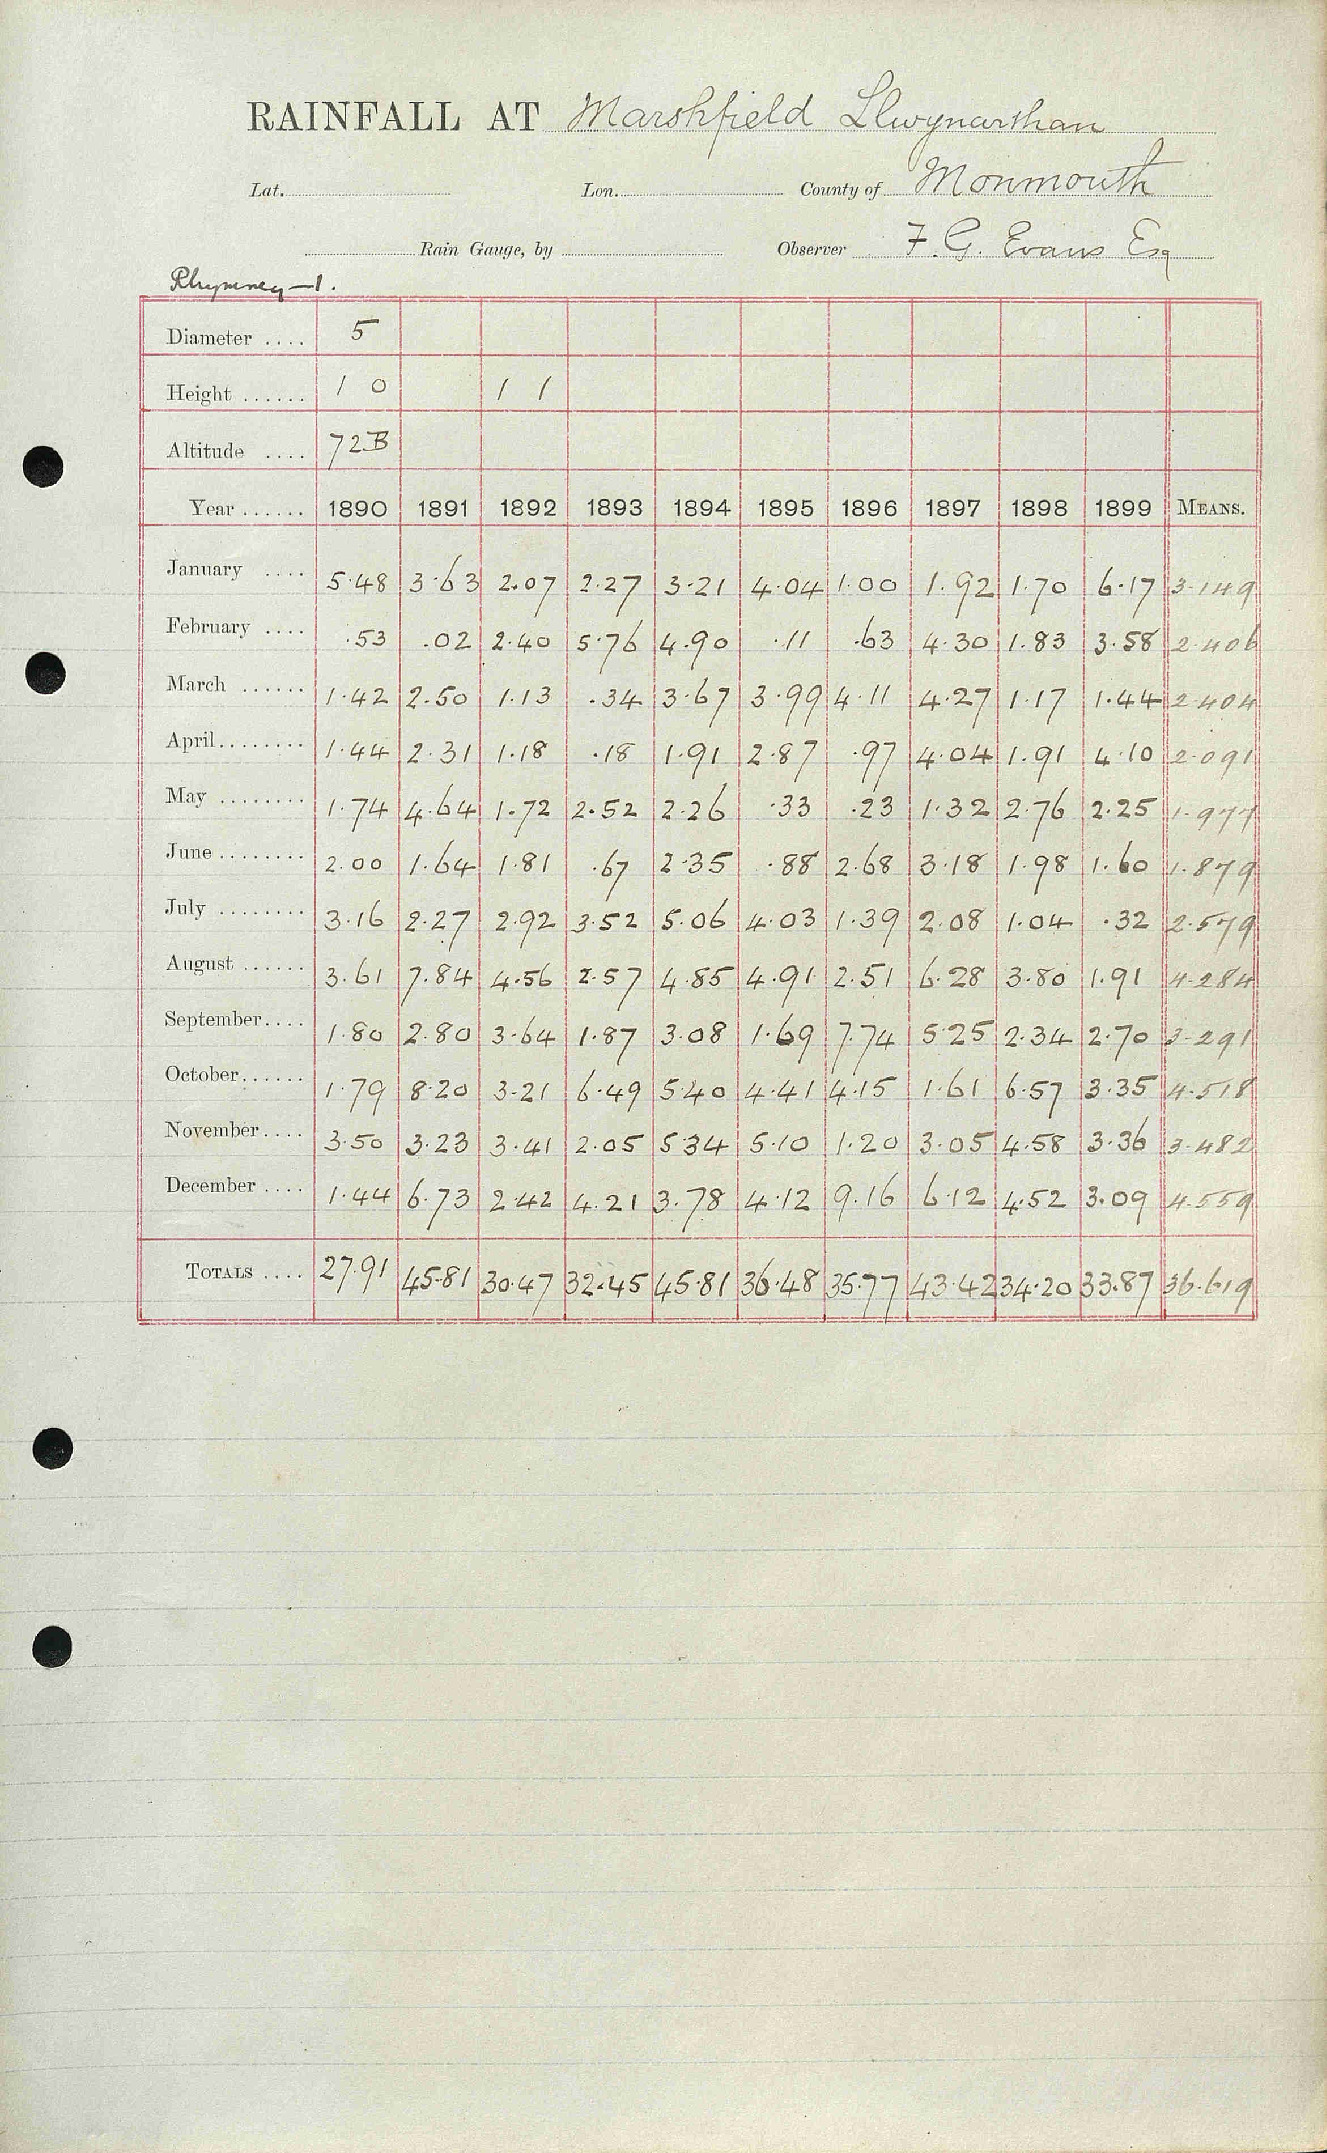 RAINFALL AT Marshfield Llwynarthan
Lat. Lon. County of Monmouth
Rain Gauge, by Observer F. G. Evans Esq
Rhymney—1.
Diameter .... 5
Height ...... 1 0 1 1
Altitude .... 72B
Year ...... 1890 1891 1892 1893 1894 1895 1896 1897 1898 1899 MEANS.
January .... 5.48 3.63 2.07 2.27 3.21 4.04 1.00 1.92 1.70 6.17 3.149
February .... .53 .02 2.40 5.76 4.90 .11 .63 4.30 1.83 3.58 2.406
March ...... 1.42 2.50 1.13 .34 3.67 3.99 4.11 4.27 1.17 1.44 2.404
April........ 1.44 2.31 1.18 .18 1.91 2.87 .97 4.04 1.91 4.10 2.091
May ........ 1.74 4.64 1.72 2.52 2.26 .33 .23 1.32 2.76 2.25 1.977
June ........ 2.00 1.64 1.81 .67 2.35 .88 2.68 3.18 1.98 1.60 1.879
July ........ 3.16 2.27 2.92 3.52 5.06 4.03 1.39 2.08 1.04 .32 2.579
August ...... 3.61 7.84 4.56 2.57 4.85 4.91 2.51 6.28 3.80 1.91 4.284
September.... 1.80 2.80 3.64 1.87 3.08 1.69 7.74 5.25 2.34 2.70 3.291
October...... 1.79 8.20 3.21 6.49 5.40 4.41 4.15 1.61 6.57 3.35 4.518
November.... 3.50 3.23 3.41 2.05 5.34 5.10 1.20 3.05 4.58 3.36 3.482
December .... 1.44 6.73 2.42 4.21 3.78 4.12 9.16 6.12 4.52 3.09 4.559
TOTALS .... 27.91 45.81 30.47 32.45 45.81 36.48 35.77 43.42 34.20 33.87 36.619